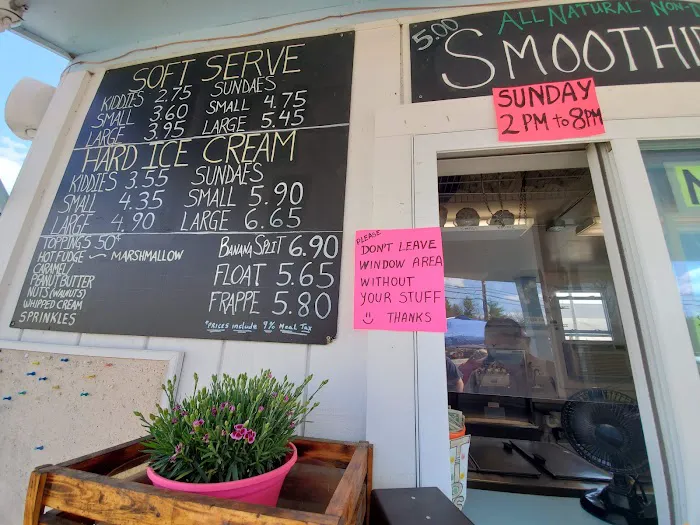 SOFT SERVE
KIDDIES 2.75
SMALL 3.60
LARGE 3.95
SUNDAES
SMALL 4.75
LARGE 5.45
HARD ICE CREAM
KIDDIES 3.55
SMALL 4.35
LARGE 4.90
SUNDAES
SMALL 5.90
LARGE 6.65
TOPPINGS 50¢
HOT FUDGE ~ MARSHMALLOW
CARAMEL/
PEANUT BUTTER
NUTS (WALNUTS)
WHIPPED CREAM
SPRINKLES
BANANA SPLIT 6.90
FLOAT 5.65
FRAPPE 5.80
*PRICES include 9% Meal Tax
5.00
ALL NATURAL NON-
SMOOTHIE
SUNDAY
2 PM to 8PM
PLEASE
DON'T LEAVE
WINDOW AREA
WITHOUT
YOUR STUFF
THANKS